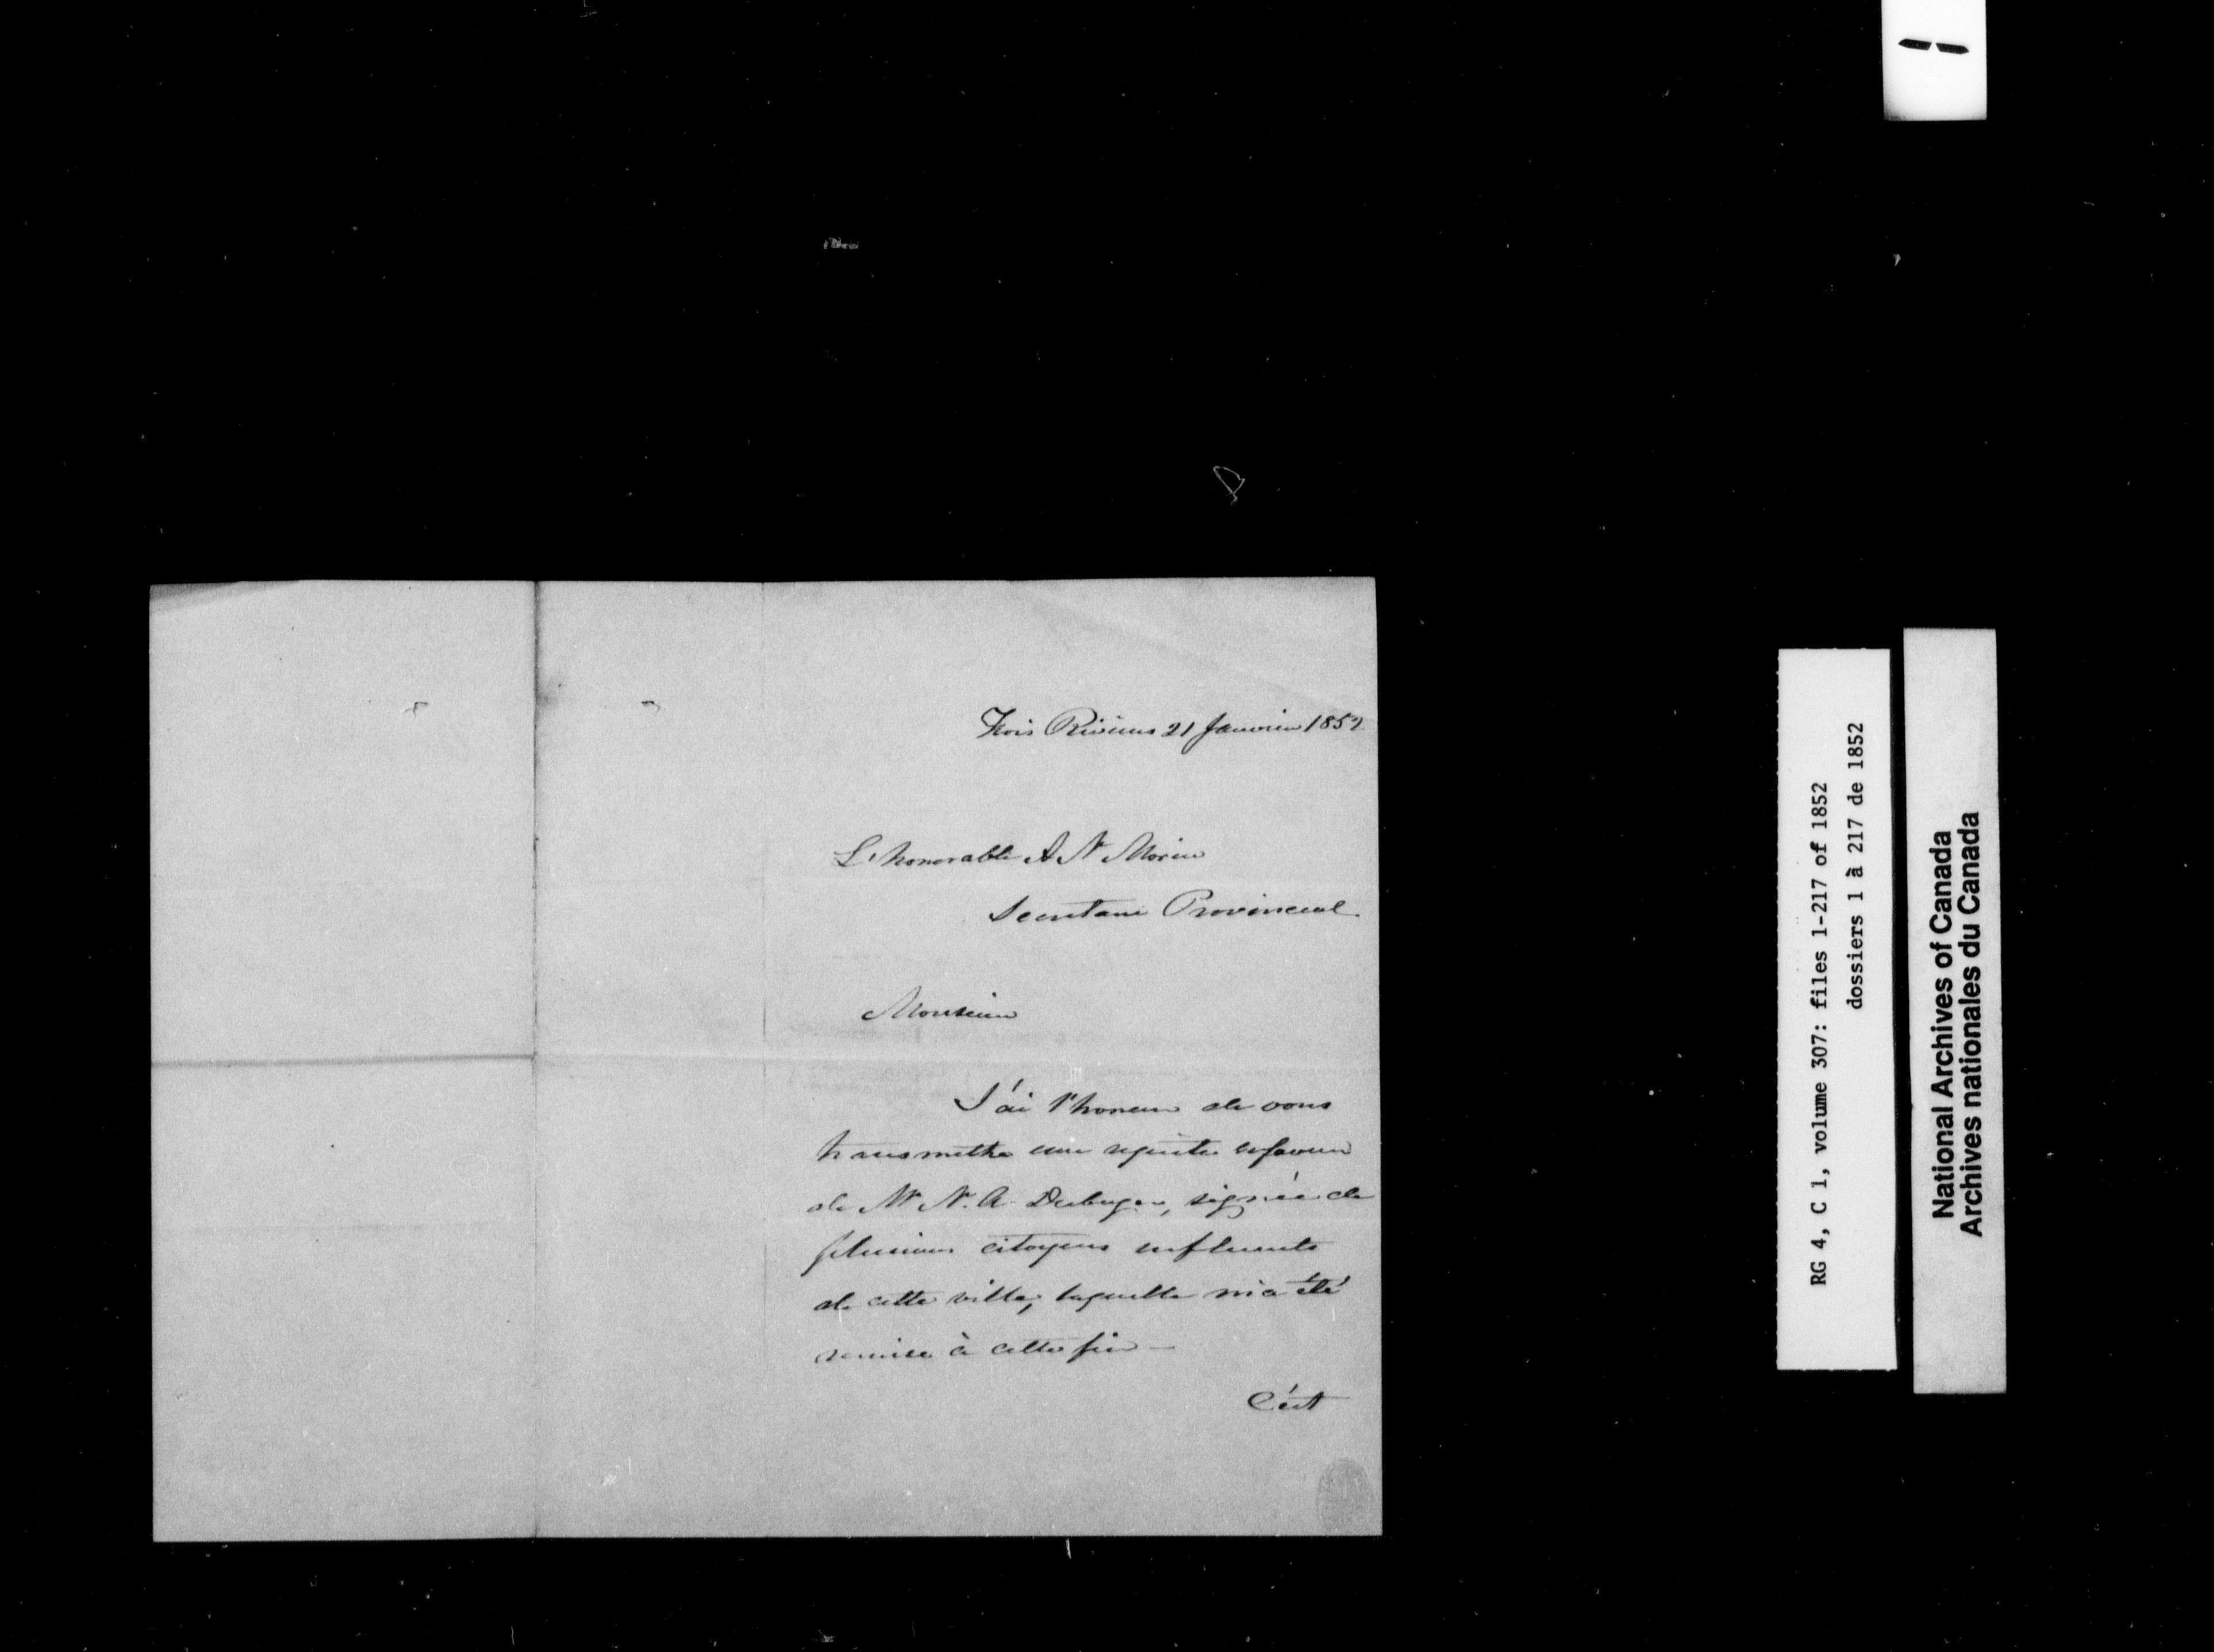 Trois Rivieres 21 Janvier 1852
L'honorable A N Morin
Secretaire Provincial.
Monsieur
J'ai l'honneur de vous
transmettre une requête en faveur
de Mr N. A. signée de
plusieurs citoyens influents
de cette ville, laquelle m'a été
remise à cette fin —
C'est
RG 4, C 1, volume 307: files 1-217 of 1852
dossiers 1 à 217 de 1852
National Archives of Canada
Archives nationales du Canada